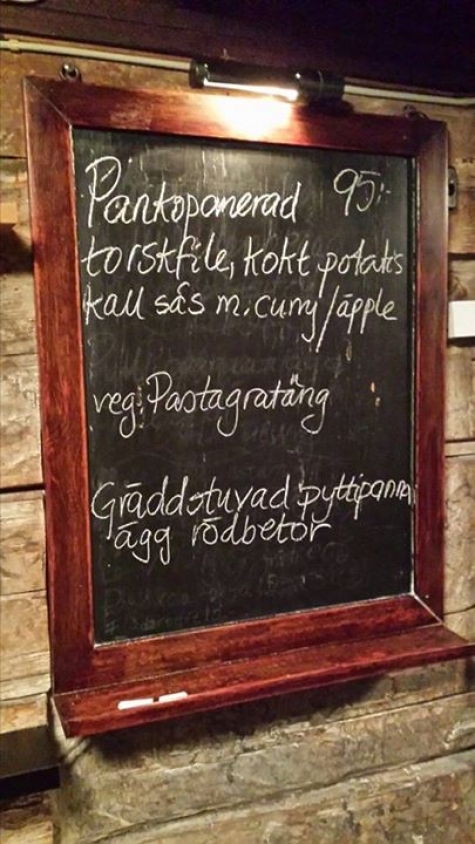 Pankopanerad 95:-
torskfile, kokt potatis
kall sås m. curry/äpple
veg. Pastagratäng
Gräddstuvad pyttipanna
ägg rödbetor